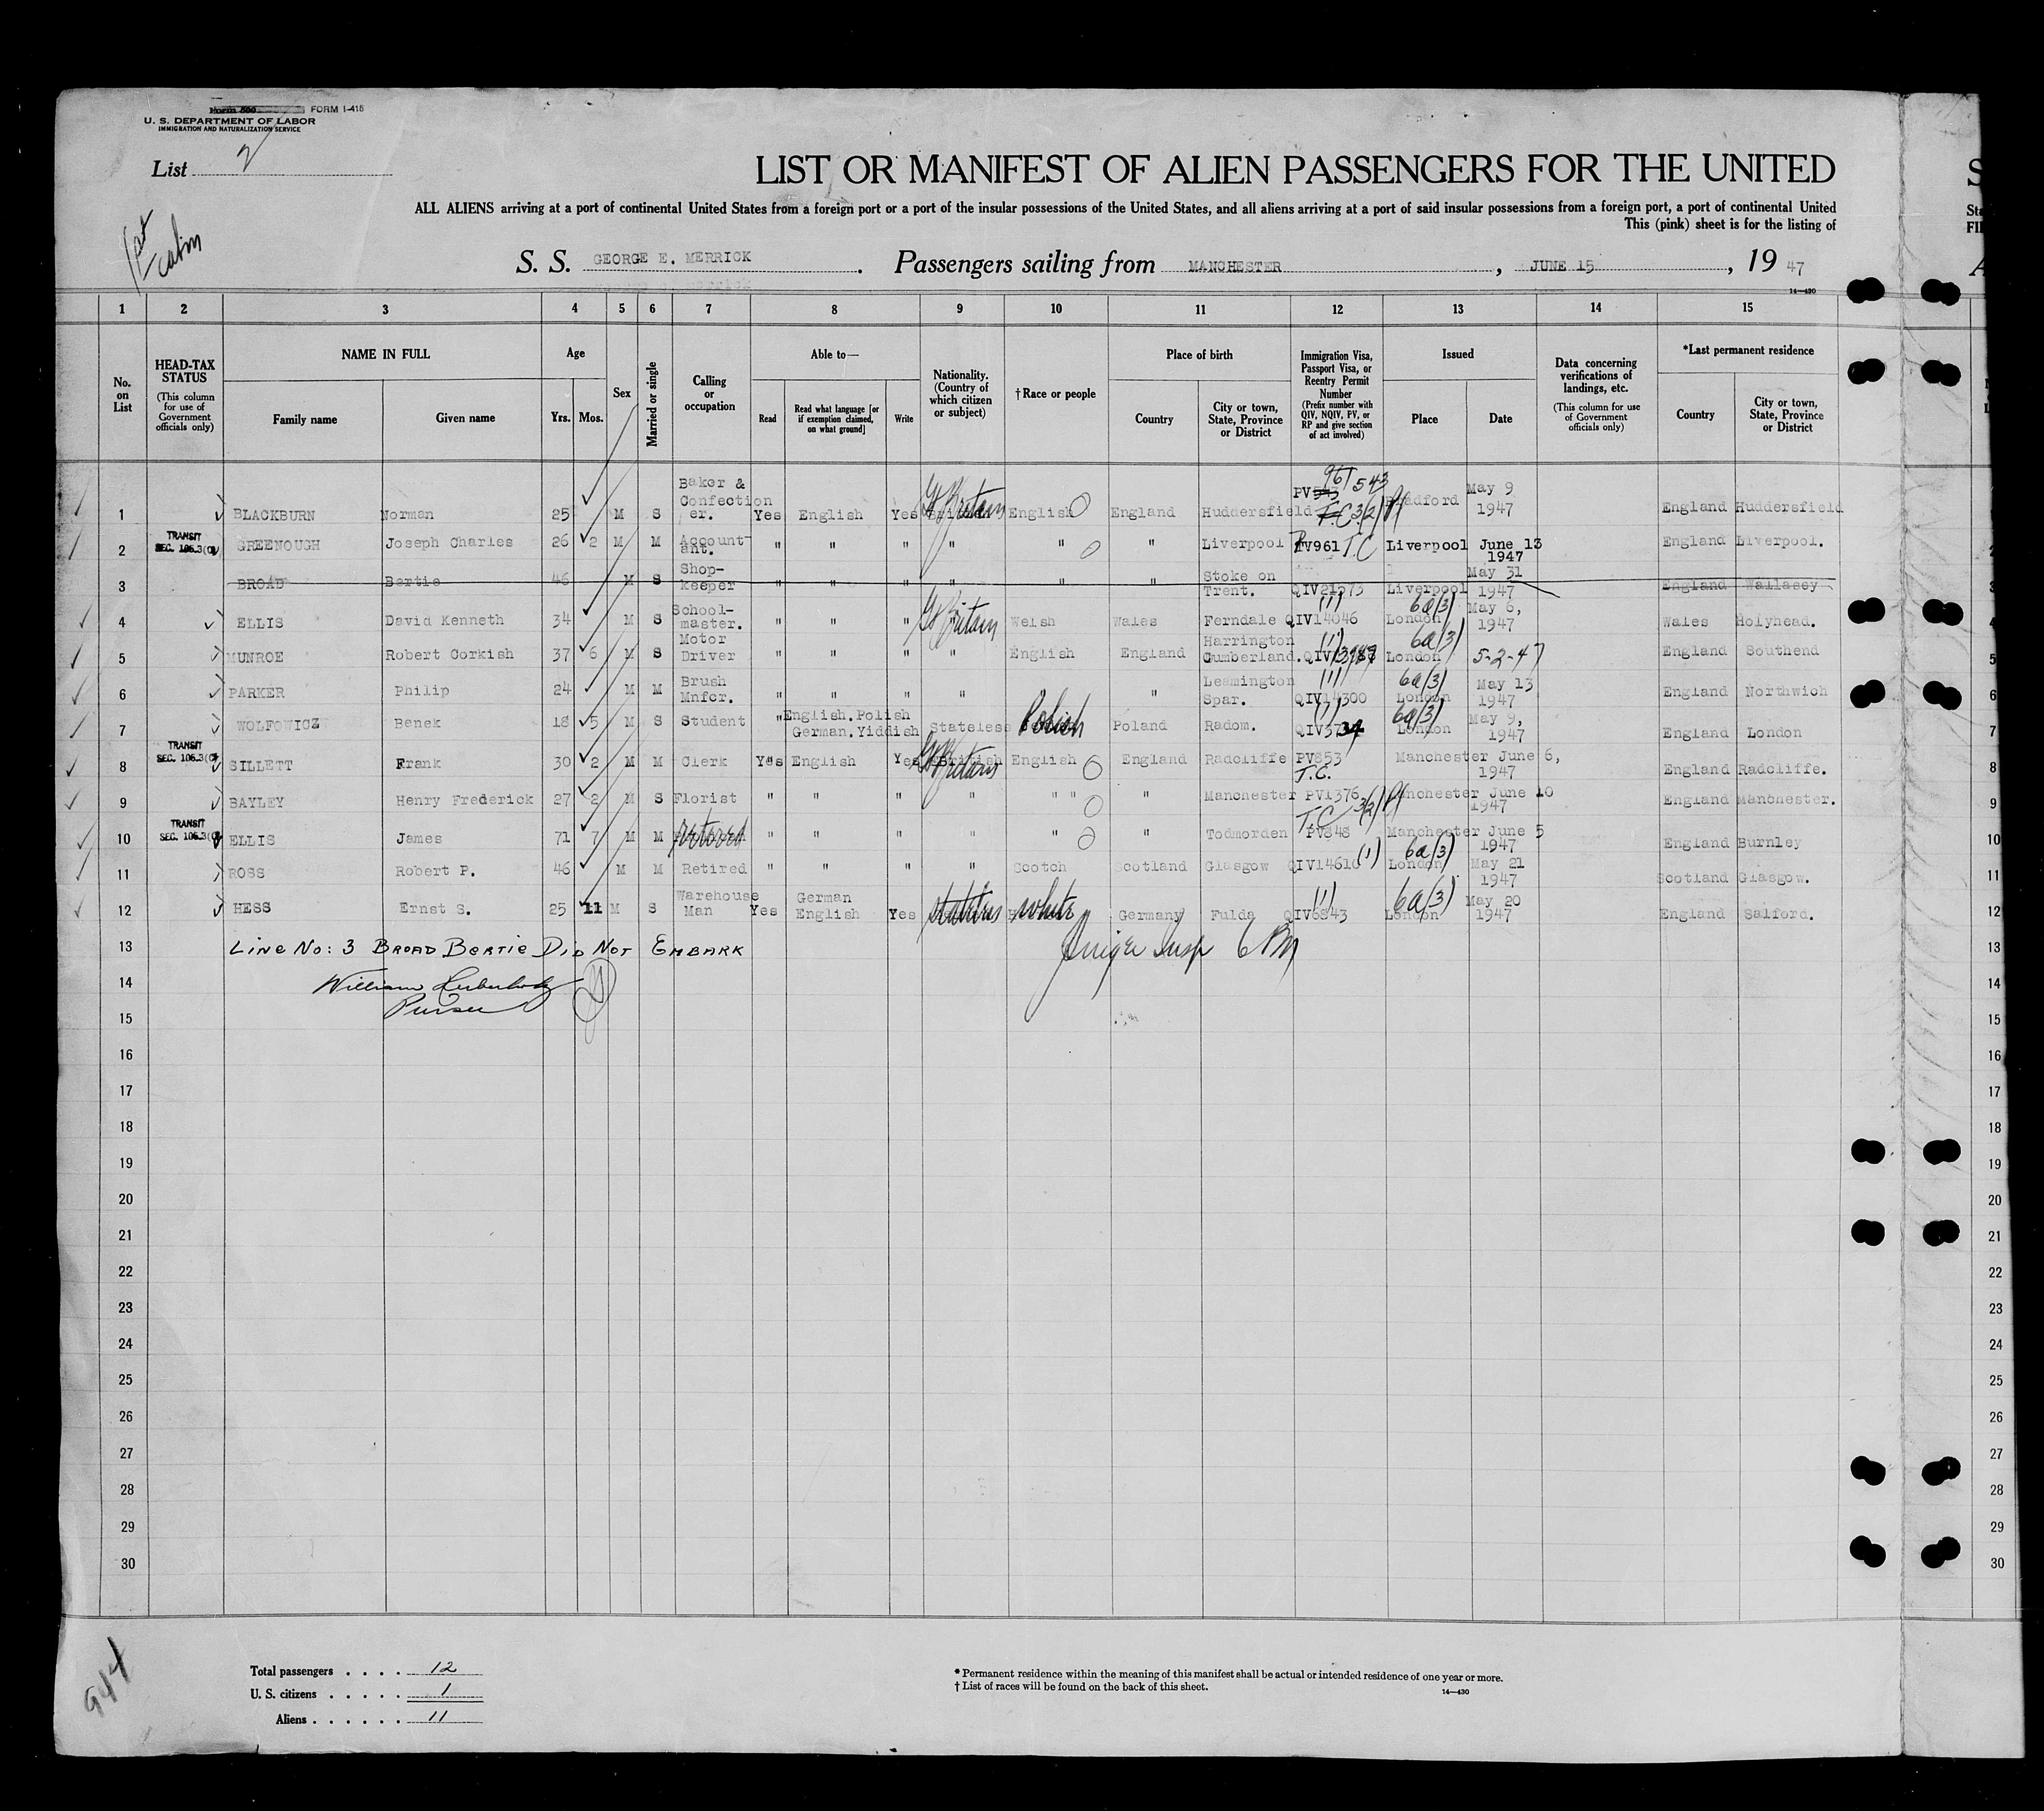 Form 500 FORM I-415
U. S. DEPARTMENT OF LABOR
IMMIGRATION AND NATURALIZATION SERVICE
List 2
1st cabin
LIST OR MANIFEST OF ALIEN PASSENGERS FOR THE UNITED
ALL ALIENS arriving at a port of continental United States from a foreign port or a port of the insular possessions of the United States, and all aliens arriving at a port of said insular possessions from a foreign port, a port of continental United
This (pink) sheet is for the listing of
S. S. GEORGE E. MERRICK. Passengers sailing from MANCHESTER, JUNE 15, 19 47
14—430
1 2 3 4 5 6 7 8 9 10 11 12 13 14 15
No. on List
HEAD-TAX STATUS (This column for use of Government officials only)
NAME IN FULL Family name Given name
Age Yrs. Mos.
Sex
Married or single
Calling or occupation
Able to— Read Read what language [or if exemption claimed, on what ground] Write
Nationality. (Country of which citizen or subject)
†Race or people
Place of birth Country City or town, State, Province or District
Immigration Visa, Passport Visa, or Reentry Permit Number (Prefix number with QIV, NQIV, PV, or RP and give section of act involved)
Issued Place Date
Data concerning verifications of landings, etc. (This column for use of Government officials only)
*Last permanent residence Country City or town, State, Province or District
1 BLACKBURN Norman 25 M S Baker & Confectioner. Yes English Yes Gt Britain English England Huddersfield PV 961543 T.C 3(2) Bradford May 9 1947 England Huddersfield
2 TRANSIT SEC. 106.3(C) GREENOUGH Joseph Charles 26 2 M M Account-ant. " " " " " " Liverpool PV961 T.C Liverpool June 13 1947 England Liverpool.
3 BROAD Bertie 46 M S Shop-keeper " " " " " " Stoke on Trent. QIV21573 Liverpool May 31 1947 England Wallasey
4 ELLIS David Kenneth 34 M S School-master. " " " Gt Britain Welsh Wales Ferndale QIV14046 London 6a(3) May 6, 1947 Wales Holyhead.
5 MUNROE Robert Corkish 37 6 M S Motor Driver " " " " English England Harrington Cumberland. QIV London 6a(3) 5-2-47 England Southend
6 PARKER Philip 24 M M Brush Mnfcr. " " " " " Leamington Spar. QIV14300 London 6a(3) May 13 1947 England Northwich
7 WOLFOWICZ Benek 18 5 M S Student " English.Polish German.Yiddish Stateless Polish Poland Radom. QIV3734 London 6a(3) May 9, 1947 England London
8 TRANSIT SEC. 106.3(C) SILLETT Frank 30 2 M M Clerk Yes English Yes Gt Britain English England Radcliffe PV853 T.C. Manchester June 6, 1947 England Radcliffe.
9 BAYLEY Henry Frederick 27 2 M S Florist " " " " " " " Manchester PV1376 T.C 3(2) Manchester June 10 1947 England Manchester.
10 TRANSIT SEC. 106.3(C) ELLIS James 71 7 M M retired " " " " " " Todmorden PV848 Manchester June 5 1947 England Burnley
11 ROSS Robert P. 46 M M Retired " " " " Scotch Scotland Glasgow QIV14610 (1) London 6a(3) May 21 1947 Scotland Glasgow.
12 HESS Ernst S. 25 11 M S Warehouse Man Yes German English Yes stateless white Germany Fulda QIV6843 London 6a(3) May 20 1947 England Salford.
13 LINE NO: 3 BROAD BERTIE DID NOT EMBARK
14 William
Purser
15
16
17
18
19
20
21
22
23
24
25
26
27
28
29
30
944
Total passengers . . . . 12
U. S. citizens . . . . . 1
Aliens . . . . . . 11
* Permanent residence within the meaning of this manifest shall be actual or intended residence of one year or more.
† List of races will be found on the back of this sheet.
14—430